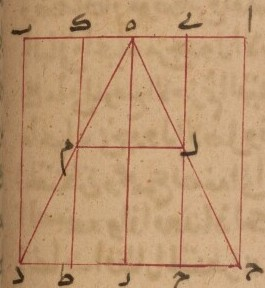 ا ي ه ك ب
ل م
ج ح ز ط د